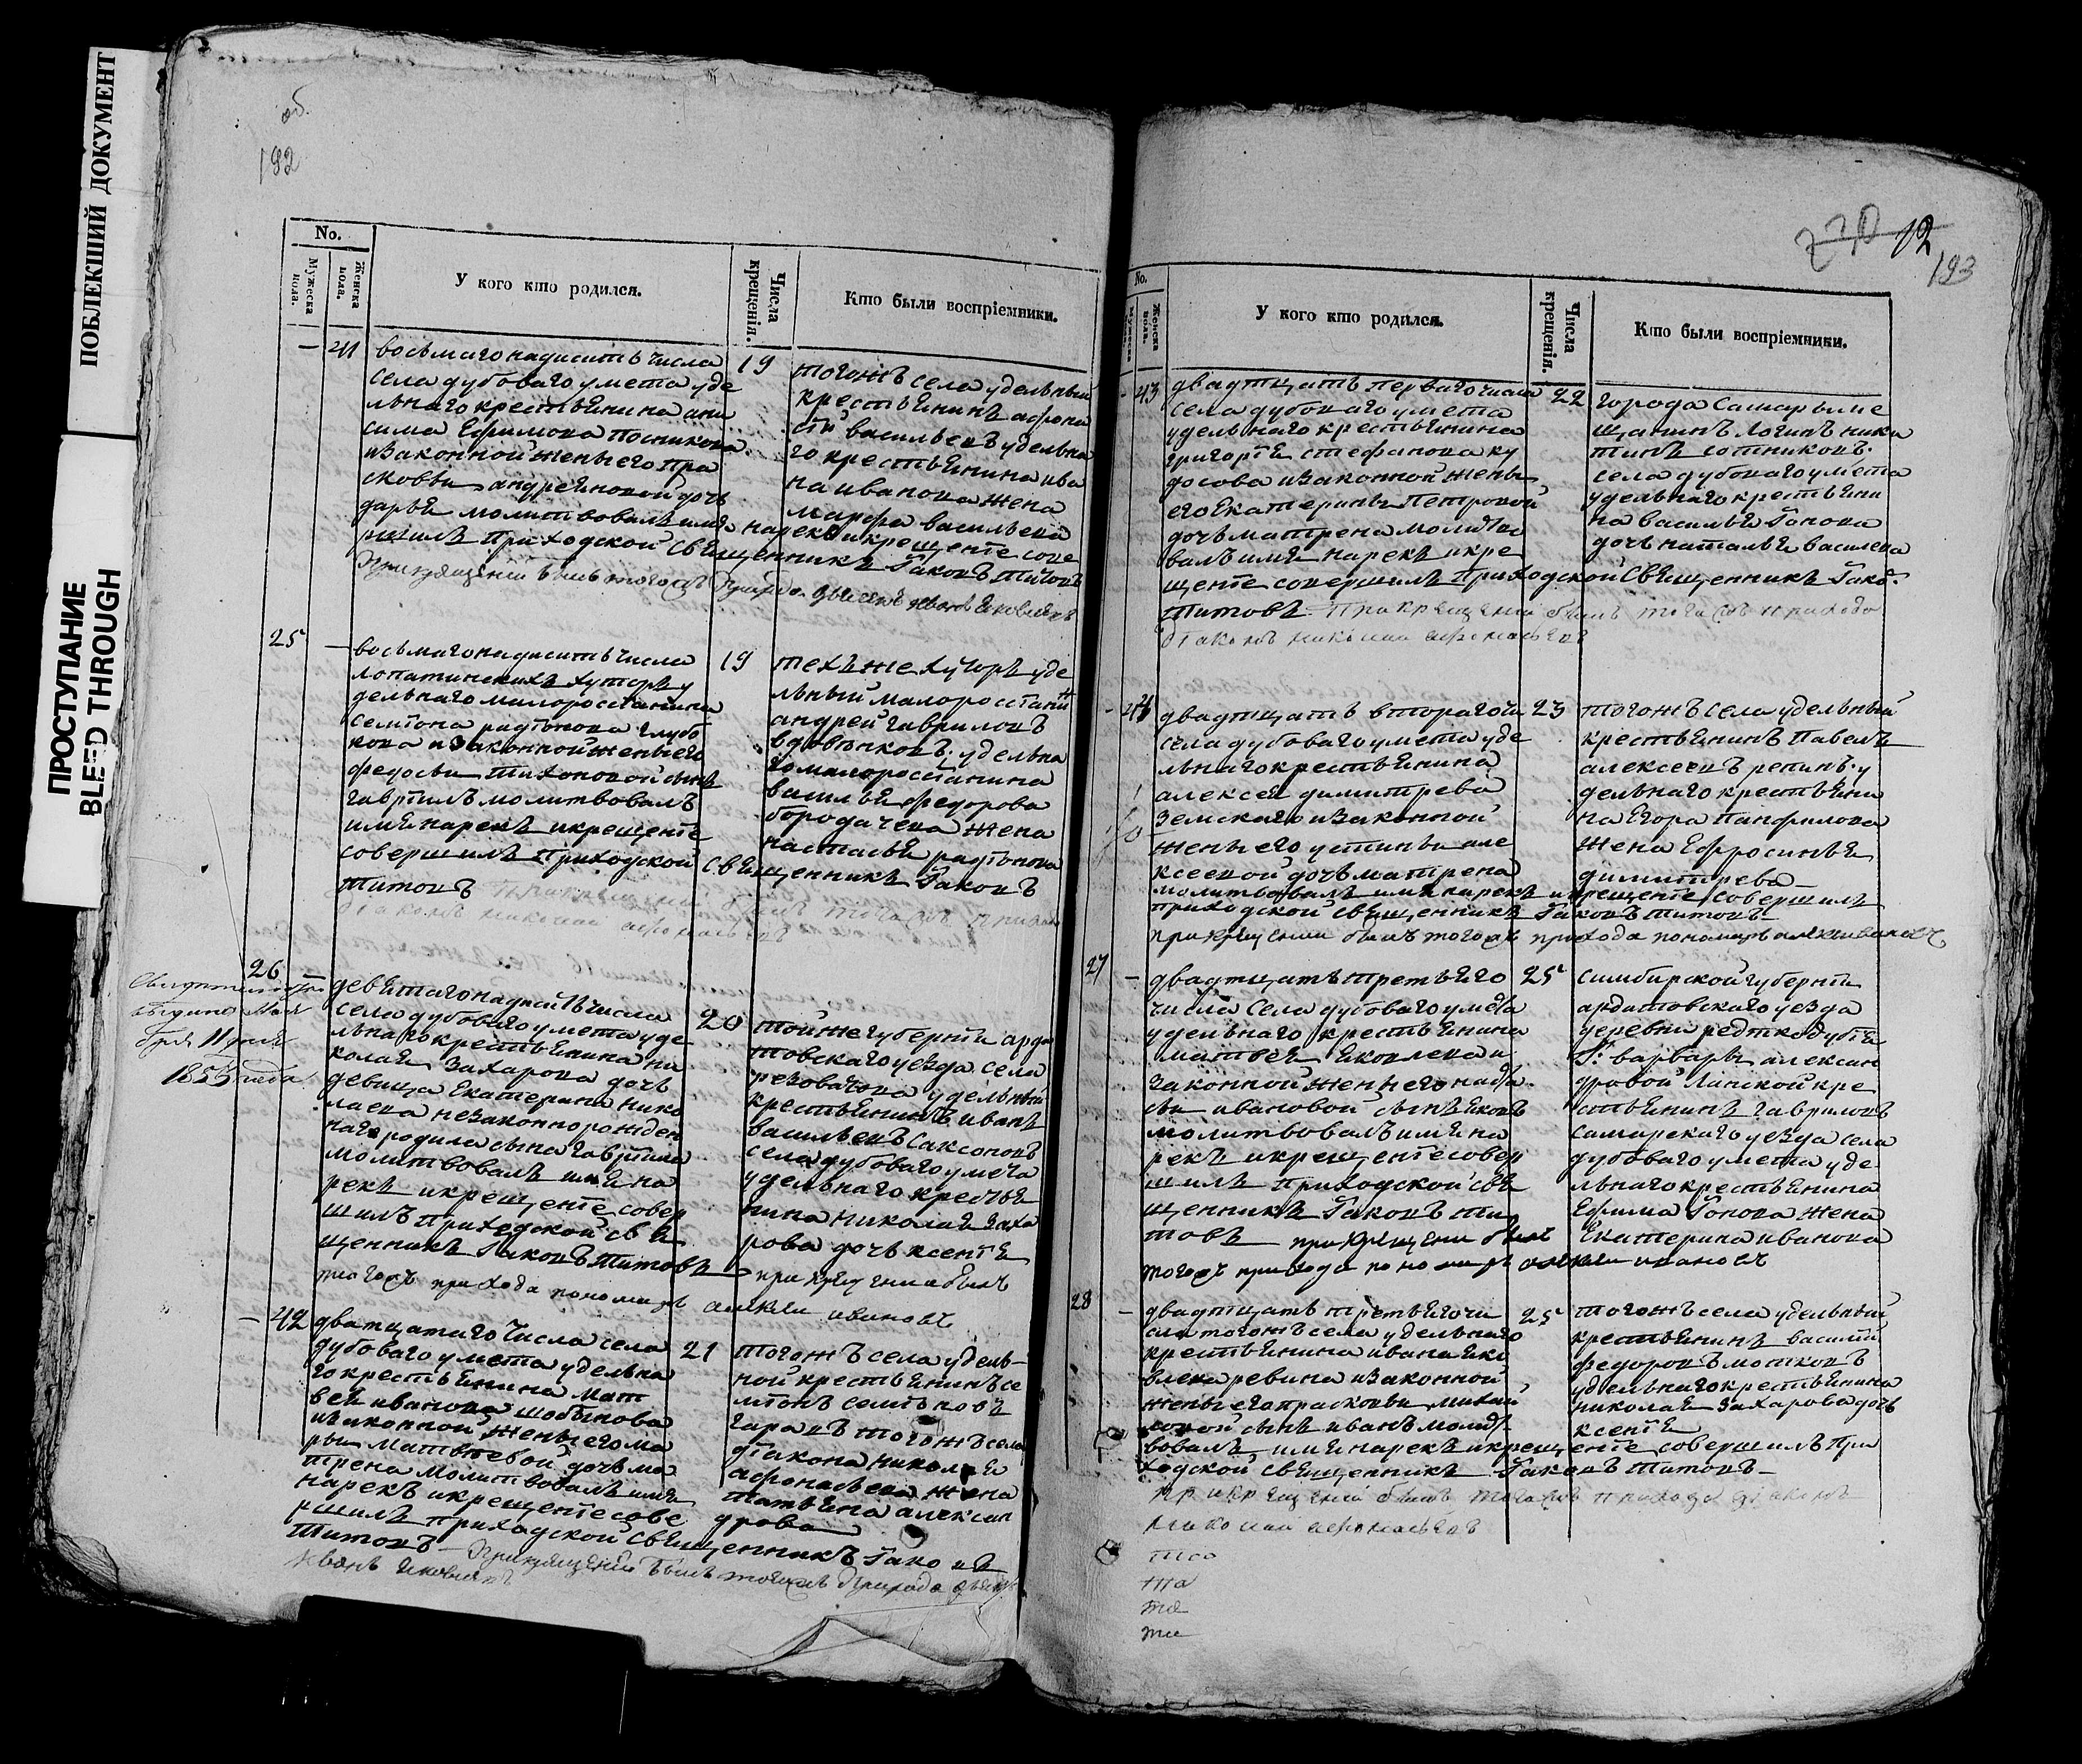 ПОБЛЕКШИЙ ДОКУМЕНТ
ПРОСТУПАНИЕ
BLED THROUGH
об.
192
No.
Мужеска пола.
Женска пола.
У кого кто родился.
Числа крещенія.
Кто были воспріемники.
— 41 восьмагонадцать числа
села дубоваго умета уде
льнаго крестьянина ани
сима Ефимова Посникова
изаконной жены его пра
сковьи андреяновой дочь
дарья молитвовалъ имя нарекъ и крещенте сове
ршилъ приходской священникъ Iаковъ Титовъ
19
тогожъ села удельный
крестьянинъ афона
сти васильевъ удельна
го крестьянина ива
на иванова жена
марфа васильева
25 —
восьмагонадцать числа
лопатинскихъ хуторъ у
дельнаго малоросстянина
семтона радтонова глубо
кова изаконной жены его
федосьи тихоновой сынъ
гаврtилъ молитвовалъ
имя нарекъ и крещенте
совершилъ приходской священникъ Iаковъ
Титовъ При крещенtи былъ тогожъ прихода
дtаконъ николай афонасьевъ
19
техъ же хуторъ уде
льный малоросстанинъ
андрей гавриловъ
вдовенковъ. удельна
го малоросстанина
василья федорова
бородачева жена
настасья радтонова
26 —
1855 года
девятагонадцать числа
села дубоваго умета уде
льнаго крестьянина ни
колая захарова дочь
девица Екатерина нико
лаева незаконнорожден
наго родила сына гаврtила
молитвовалъ имя на
рекъ и крещенте совер
шилъ приходской свя
щенникъ Iаковъ Титовъ при крещении былъ
тогожъ прихода пономарь алексей ивановъ
20
тойже губернти арда
товскаго уезда села
резоватова удельный
крестьянинъ иванъ
васильевъ саксоновъ
села дубоваго умета
удельнаго крестья
нина николая заха
рова дочь ксентя
— 42 дватцатаго числа села
дубоваго умета удельна
го крестьянина мат
вея иванова шобанова
изаконной жены его ма
ры матвеевой дочь ма
трена молитвовалъ имя
нарекъ и крещенте сове
ршилъ приходской священникъ Iаковъ
Титовъ
21
тогожъ села удель-
ной крестьянинъ се
мтонъ семеновъ
гараевъ тогожъ села
дtакона николая
афонасьева жена
татьяна алексан
дрова
Иванъ Яковлевъ
220 12
193
No.
Мужеска пола.
Женска пола.
У кого кто родился.
Числа крещенія.
Кто были воспріемники.
- 43
двадтцать перваго числа
села дубоваго умета
удельнаго крестьянина
григортя стефанова ку
досова изаконной жены
его Екатерины Петровой
дочь матрена молитво
валъ имя нарекъ и кре
щенте совершилъ приходской священникъ Iако
Титовъ При крещенtи былъ тогожъ прихода
дtаконъ николай афонасьевъ
22
города самары ме
щанинъ логинъ ники
тинъ сотниковъ.
села дубоваго умета
удельнаго крестьяни
на василья Iонова
дочь наталья василева
- 44
двадтцать втораго чи
сла дубоваго умета уде
льнаго крестьянина
алексея димитрева
земскаго изаконной
жены его устиньи але
ксеевой дочь матрена
молитвовалъ имя нарекъ и крещенте совершилъ
приходской священникъ Iаковъ Титовъ
при крещении былъ тогожъ прихода пономарь алексей ивановъ
23
тогожъ села удельный
крестьянинъ Павелъ
алексеевъ репинъ. у
дельнаго крестьяни
на Егора Панфилова
жена Ефросинья
димитрева
27 —
двадтцать третьяго
числа села дубоваго умета
удельнаго крестьянина
матвея яковлева и
законной жены его наде
жи ивановой сынъ яковъ
молитвовалъ имя на
рекъ и крещенте совер
шилъ приходской свя
щенникъ Iаковъ ти
товъ при крещении былъ
тогожъ прихода пономарь алексей ивановъ
25
симбирской губернти
ардатовскаго уезда
деревни редткодубтя
Г: варвары алексан
дровой Ланской кре
стьянинъ гавриловъ
самарскаго уезда села
дубоваго умета уде
льнаго крестьянина
Ефима Iонова жена
Екатерина иванова
28 —
двадтцать третьяго чи
сла тогожъ села удельнаго
крестьянина ивана яко
влева ревина изаконной
жены его прасковьи михай
ловой сынъ иванъ молит
вовалъ имя нарекъ и крещенте совершилъ при
ходской священникъ Iаковъ Титовъ
при крещенtи былъ тогожъ прихода дtаконъ
николай афонасьевъ
25
тогожъ села удельный
крестьянинъ василtй
федоровъ мотковъ
удельнаго крестьянина
николая захарова дочь
ксентя